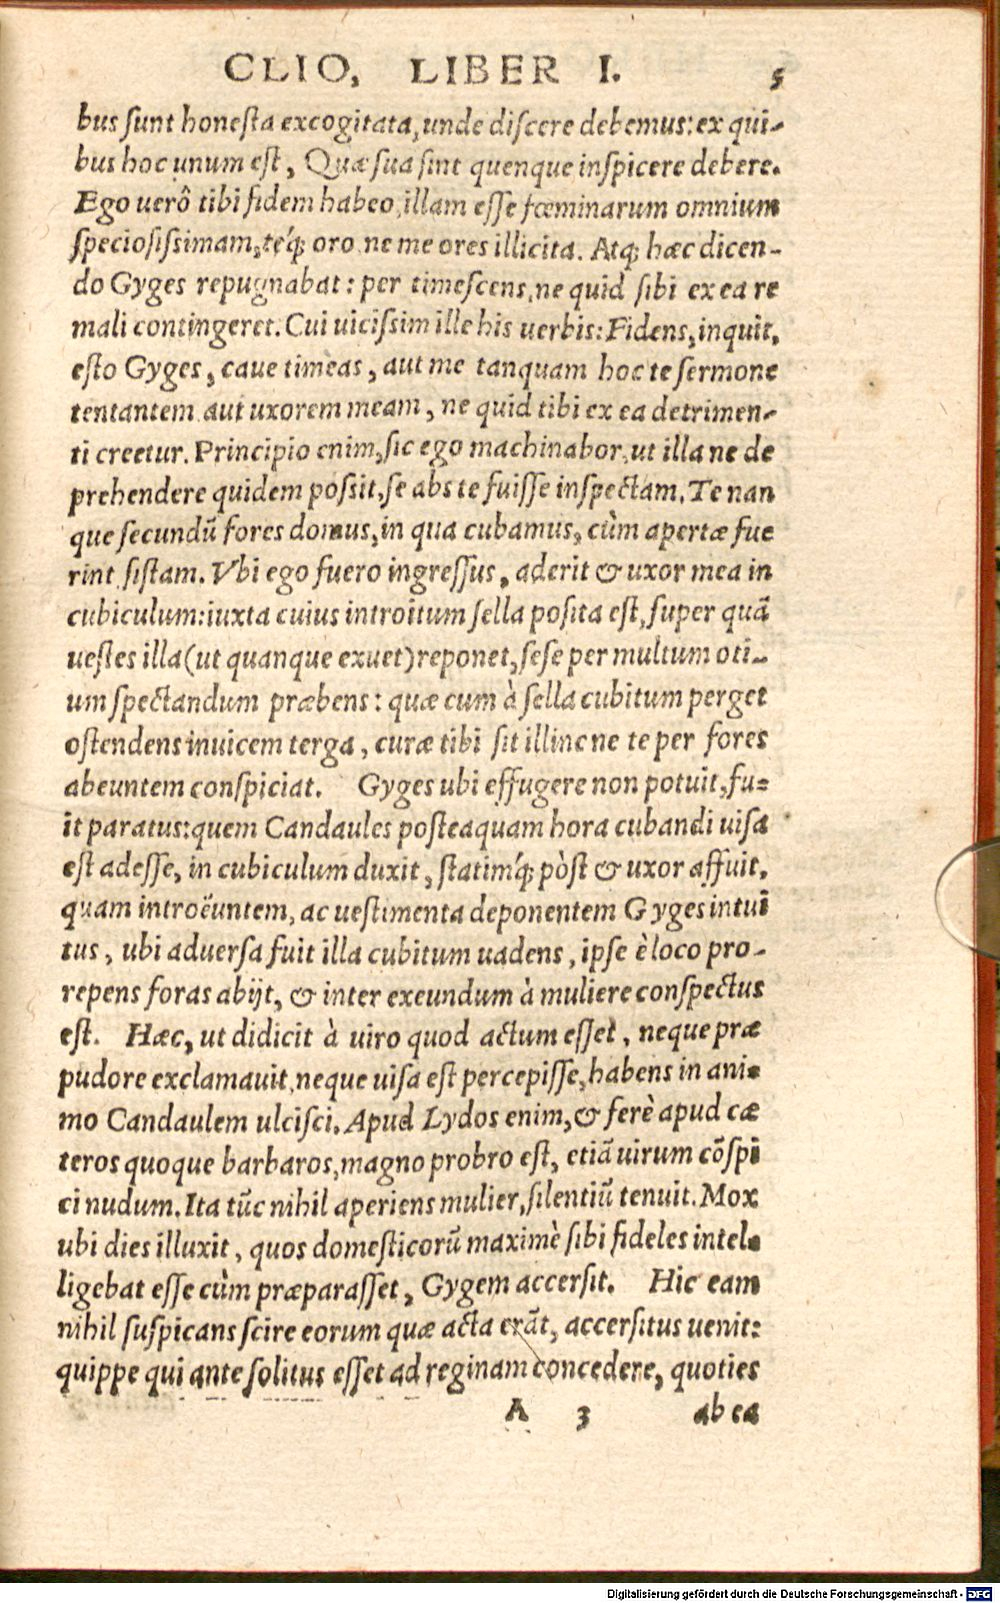 CLIO, LIBER I. 5
bus sunt honesta excogitata, unde discere debemus: ex qui-
bus hoc unum est, Quæ sua sint quenque inspicere debere.
Ego uerô tibi fidem habeo, illam esse fœminarum omnium
speciosissimam, téq; oro ne me ores illicita. Atq; hæc dicen-
do Gyges repugnabat: per timescens, ne quid sibi ex ea re
mali contingeret. Cui uicissim ille his uerbis: Fidens, inquit,
esto Gyges, caue timeas, aut me tanquam hoc te sermone
tentantem aut uxorem meam, ne quid tibi ex ea detrimen-
ti creetur. Principio enim, sic ego machinabor, ut illa ne de
prehendere quidem possit, se abs te fuisse inspectam. Te nan
que secundū fores domus, in qua cubamus, cùm apertæ fue
rint sistam. Vbi ego fuero ingressus, aderit & uxor mea in
cubiculum: iuxta cuius introitum sella posita est, super quā
uestes illa (ut quanque exuet) reponet, sese per multum oti-
um spectandum præbens: quæ cum à sella cubitum perget
ostendens inuicem terga, curæ tibi sit illinc ne te per fores
abeuntem conspiciat. Gyges ubi effugere non potuit, fu-
it paratus: quem Candaules posteaquam hora cubandi uisa
est adesse, in cubiculum duxit, statimq́; pòst & uxor affuit,
quam introëuntem, ac uestimenta deponentem Gyges intui
tus, ubi aduersa fuit illa cubitum uadens, ipse è loco pro-
repens foras abijt, & inter exeundum à muliere conspectus
est. Hæc, ut didicit à uiro quod actum esset, neque præ
pudore exclamauit, neque uisa est percepisse, habens in ani-
mo Candaulem ulcisci. Apud Lydos enim, & ferè apud cæ
teros quoque barbaros, magno probro est, etiā uirum cōspi
ci nudum. Ita tūc nihil aperiens mulier, silentiū tenuit. Mox
ubi dies illuxit, quos domesticorū maximè sibi fideles intel-
ligebat esse cùm præparasset, Gygem accersit. Hic eam
nihil suspicans scire eorum quæ acta erāt, accersitus uenit:
quippe qui ante solitus esset ad reginam concedere, quoties
A 3 ab ea
Digitalisierung gefördert durch die Deutsche Forschungsgemeinschaft - DFG